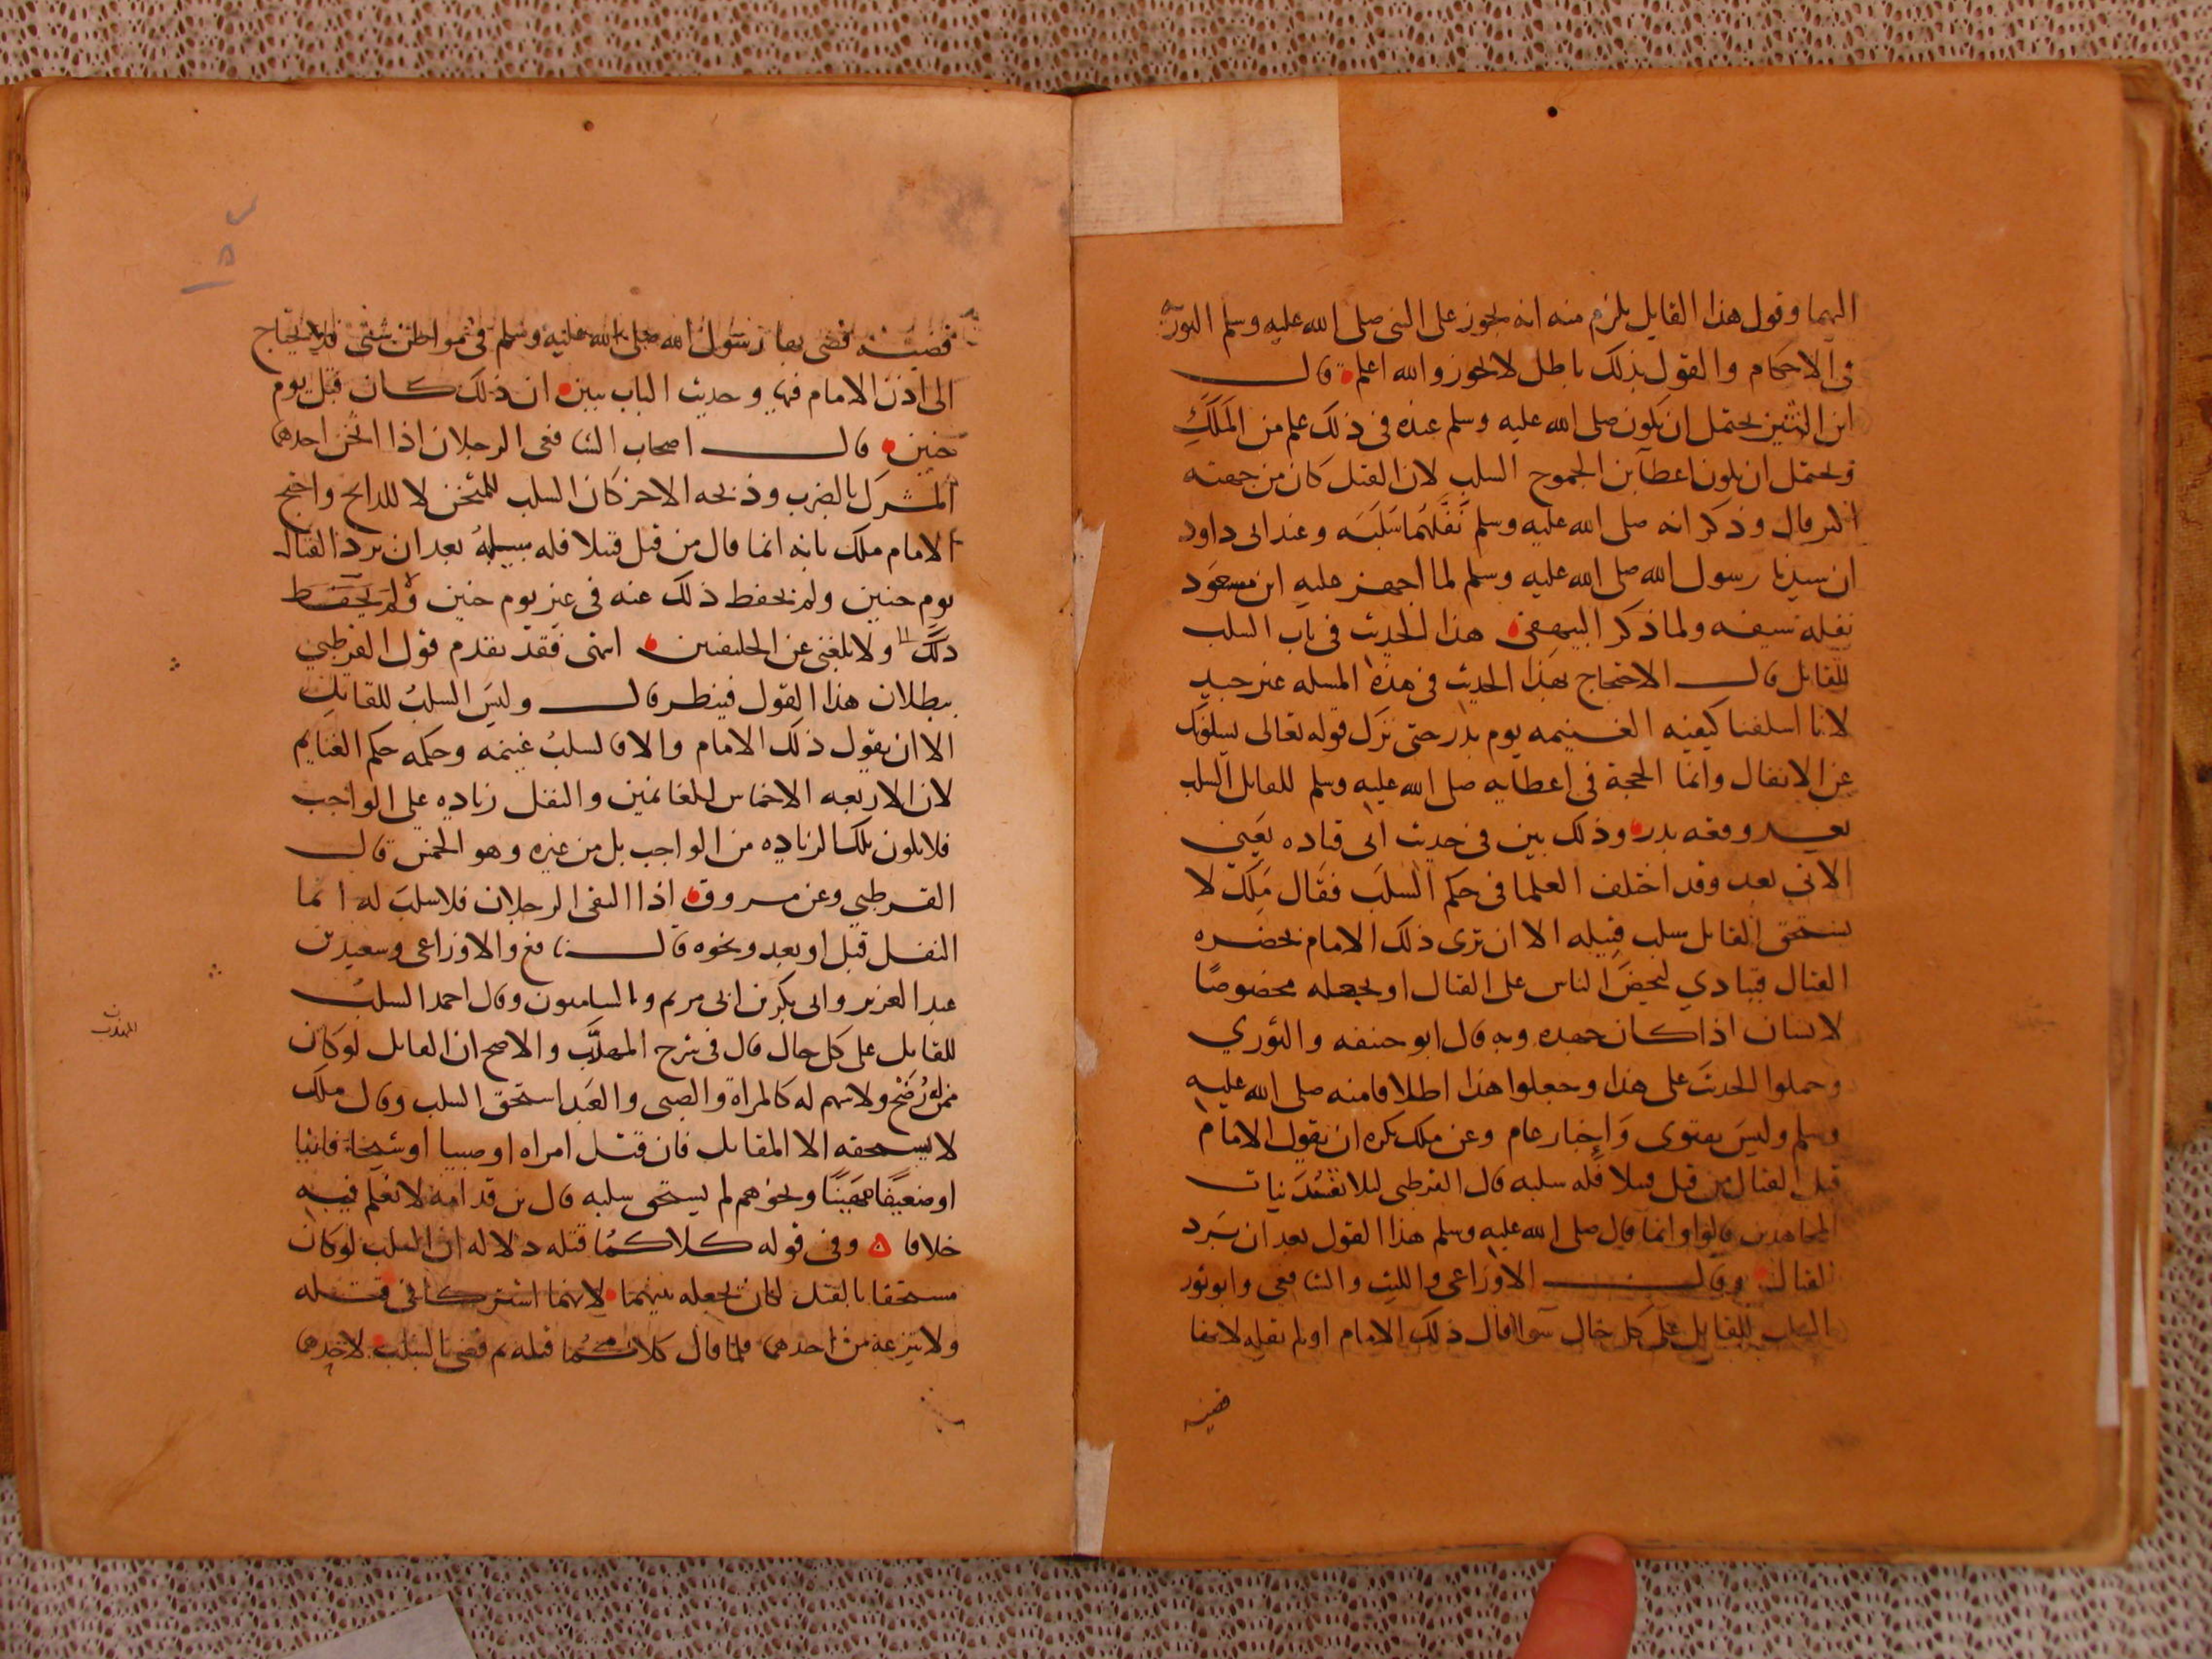 اليهما وقول هذا القايل يلزم منه انه يجوز على النبي صلى الله عليه وسلم التورية
في الاحكام والقول بذلك باطل لا يجوز والله اعلم قال
ابن التين يحتمل ان يكون صلى الله عليه وسلم عنده في ذلك علم من الملك
ويحتمل ان يكون اعطا بن الجموح السلب لان القتل كان من جهته
اكثر قال وذكر انه صلى الله عليه وسلم نفلهما سلبه وعند ابي داود
ان سيدنا رسول الله صلى الله عليه وسلم لما اجهز عليه ابن مسعود
نفله سيفه ولما ذكر البيهقي هذا الحديث في باب السلب
للقاتل قال الاحتجاج بهذا الحديث في هذه المسله غير جيد
لانا اسلفنا كيفيه الغنيمه يوم بدر حتى نزل قوله تعالى يسلونك
عن الانفال وانما الحجة في اعطايه صلى الله عليه وسلم للقاتل السلب
بعد وقعه بدر وذلك بين في حديث ابي قتاده يعني
الاتي بعد وقد اختلف العلما في حكم السلب فقال ملك لا
يستحق القاتل سلب قتيله الا ان يرى ذلك الامام بحضره
القتال فينادي ليحض الناس على القتال او يجعله مخصوصا
لانسان اذا كان جهده وبه قال ابو حنيفه والثوري
وحملوا الحديث على هذا وجعلوا هذا اطلاقا منه صلى الله عليه
وسلم وليس بفتوى وإخبار عام وعن ملك يكره ان يقول الامام
قبل القتال من قتل قتيلا فله سلبه قال القرطبي ليلا تفسد نيات
المجاهدين قالوا وانما قال صلى الله عليه وسلم هذا القول بعد ان برد
القتال وقال الاوزاعي والليث والشافعي وابو ثور
السلب للقاتل على كل حال سوا قال ذلك الامام او لم يقله لانها
قضيه
قضيه قضى بها رسول الله صلى الله عليه وسلم في مواطن شتى فلا يحتاج
الى اذن الامام فيها وحديث الباب يبين ان ذلك كان قبل يوم
حنين قال اصحاب الشافعي الرجلان اذا اثخن احدهما
المشرك بالضرب وذبحه الاخر كان السلب للمثخن لا للذابح واحتج
الامام ملك بانه انما قال من قتل قتيلا فله سلبه بعد ان برد القتال
يوم حنين ولم يحفظ ذلك عنه في غير يوم حنين ولم يحفظ
ذلك ولا بلغني عن الخليفتين انتهى فقد تقدم قول القرطبي
ببطلان هذا القول فينظر قال وليس السلب للقاتل
الا ان يقول ذلك الامام والا فالسلب غنيمه وحكمه حكم الغنايم
لان الاربعه الاخماس للغانمين والنفل زياده على الواجب
فلا يكون تلك الزياده من الواجب بل من غيره وهو الخمس قال
القرطبي وعن مسروق اذا التقى الرجلان فلا سلب له انما
النفل قبل او بعد ونحوه قال نافع والاوزاعي وسعيد بن
عبد العزيز وابي بكر بن ابي مريم والشاميون وقال احمد السلب
للقاتل على كل حال قال في شرح المهذب والاصح ان القاتل لو كان
المهذب
ممن له رضخ ولا سهم له كالمراة والصبي والعبد استحق السلب وقال ملك
لا يستحقه الا المقاتل فان قتل امراه او صبيا او شيخا فانيا
او ضعيفا مهينا ونحوهم لم يستحق سلبه قال بن قدامه لا نعلم فيه
خلافا وفي قوله كلاكما قتله دلاله ان السلب لو كان
مستحقا بالقتل لكان يجعله بينهما لانهما اشتركا في قتله
ولا ينزعه من احدهما فلما قال كلاكما قتله ثم قضى بالسلب لاحدهما